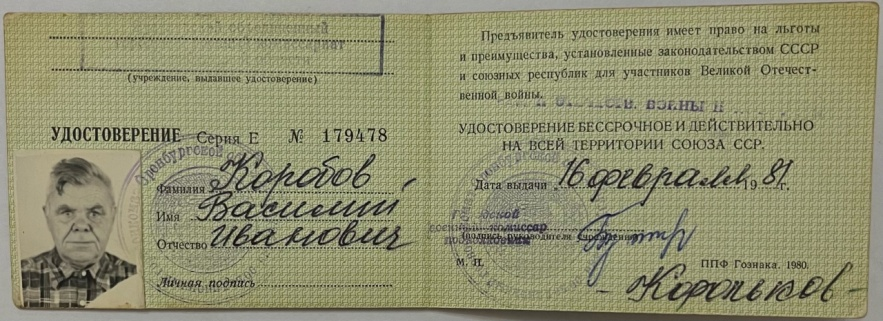 (учреждение, выдавшее удостоверение)
УДОСТОВЕРЕНИЕ Серия Е № 179478
Оренбургской
Фамилия Коробов
Имя Василий
Отчество Иванович
Личная подпись
Предъявитель удостоверения имеет право на льготы
и преимущества, установленные законодательством СССР
и союзных республик для участников Великой Отечест-
венной войны.
УДОСТОВЕРЕНИЕ БЕССРОЧНОЕ И ДЕЙСТВИТЕЛЬНО
НА ВСЕЙ ТЕРРИТОРИИ СОЮЗА ССР.
Дата выдачи 16 февраля 1981г.
военный комиссар
подполковник
(подпись руководителя учреждения)
М. П.
ППФ Гознака. 1980.
- Корольков -